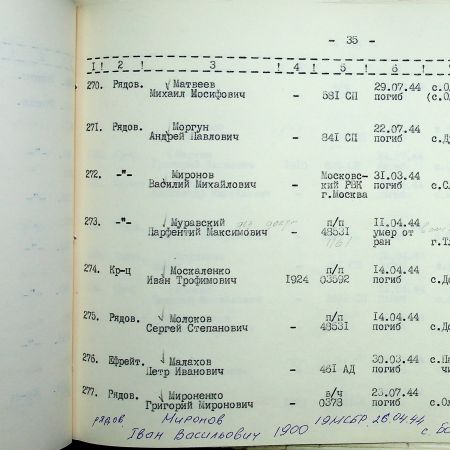 - 35 -
1! 2 ! 3 ! 4 ! 5 ! 6 !
270. Рядов. Матвеев 29.07.44 с.О
Михаил Иосифович - 581 СП погиб (с.О
271. Рядов. Моргун 22.07.44
Андрей Павлович - 841 СП погиб с.Д
272. -"- Миронов Московс- 31.03.44
Василий Михайлович - кий РВК погиб с.С
г.Москва
273. -"- Муравский п/п 11.04.44
Парфентий Максимович - 48531 умер от
ран г.Т
274. Кр-ц Москаленко п/п 14.04.44
Иван Трофимович 1924 03592 погиб с.До
275. Рядов. Молоков п/п 14.04.44
Сергей Степанович - 48531 погиб с.До
276. Ефрейт. Малахов 30.03.44 с.Пе
Петр Иванович - 461 АД погиб чи
277. Рядов. Мироненко в/ч 23.07.44
Григорий Миронович - 0378 погиб с.Ол
рядов Миронов 19МСБР 28.04.44
Iван Васильович 1900 с. Ба